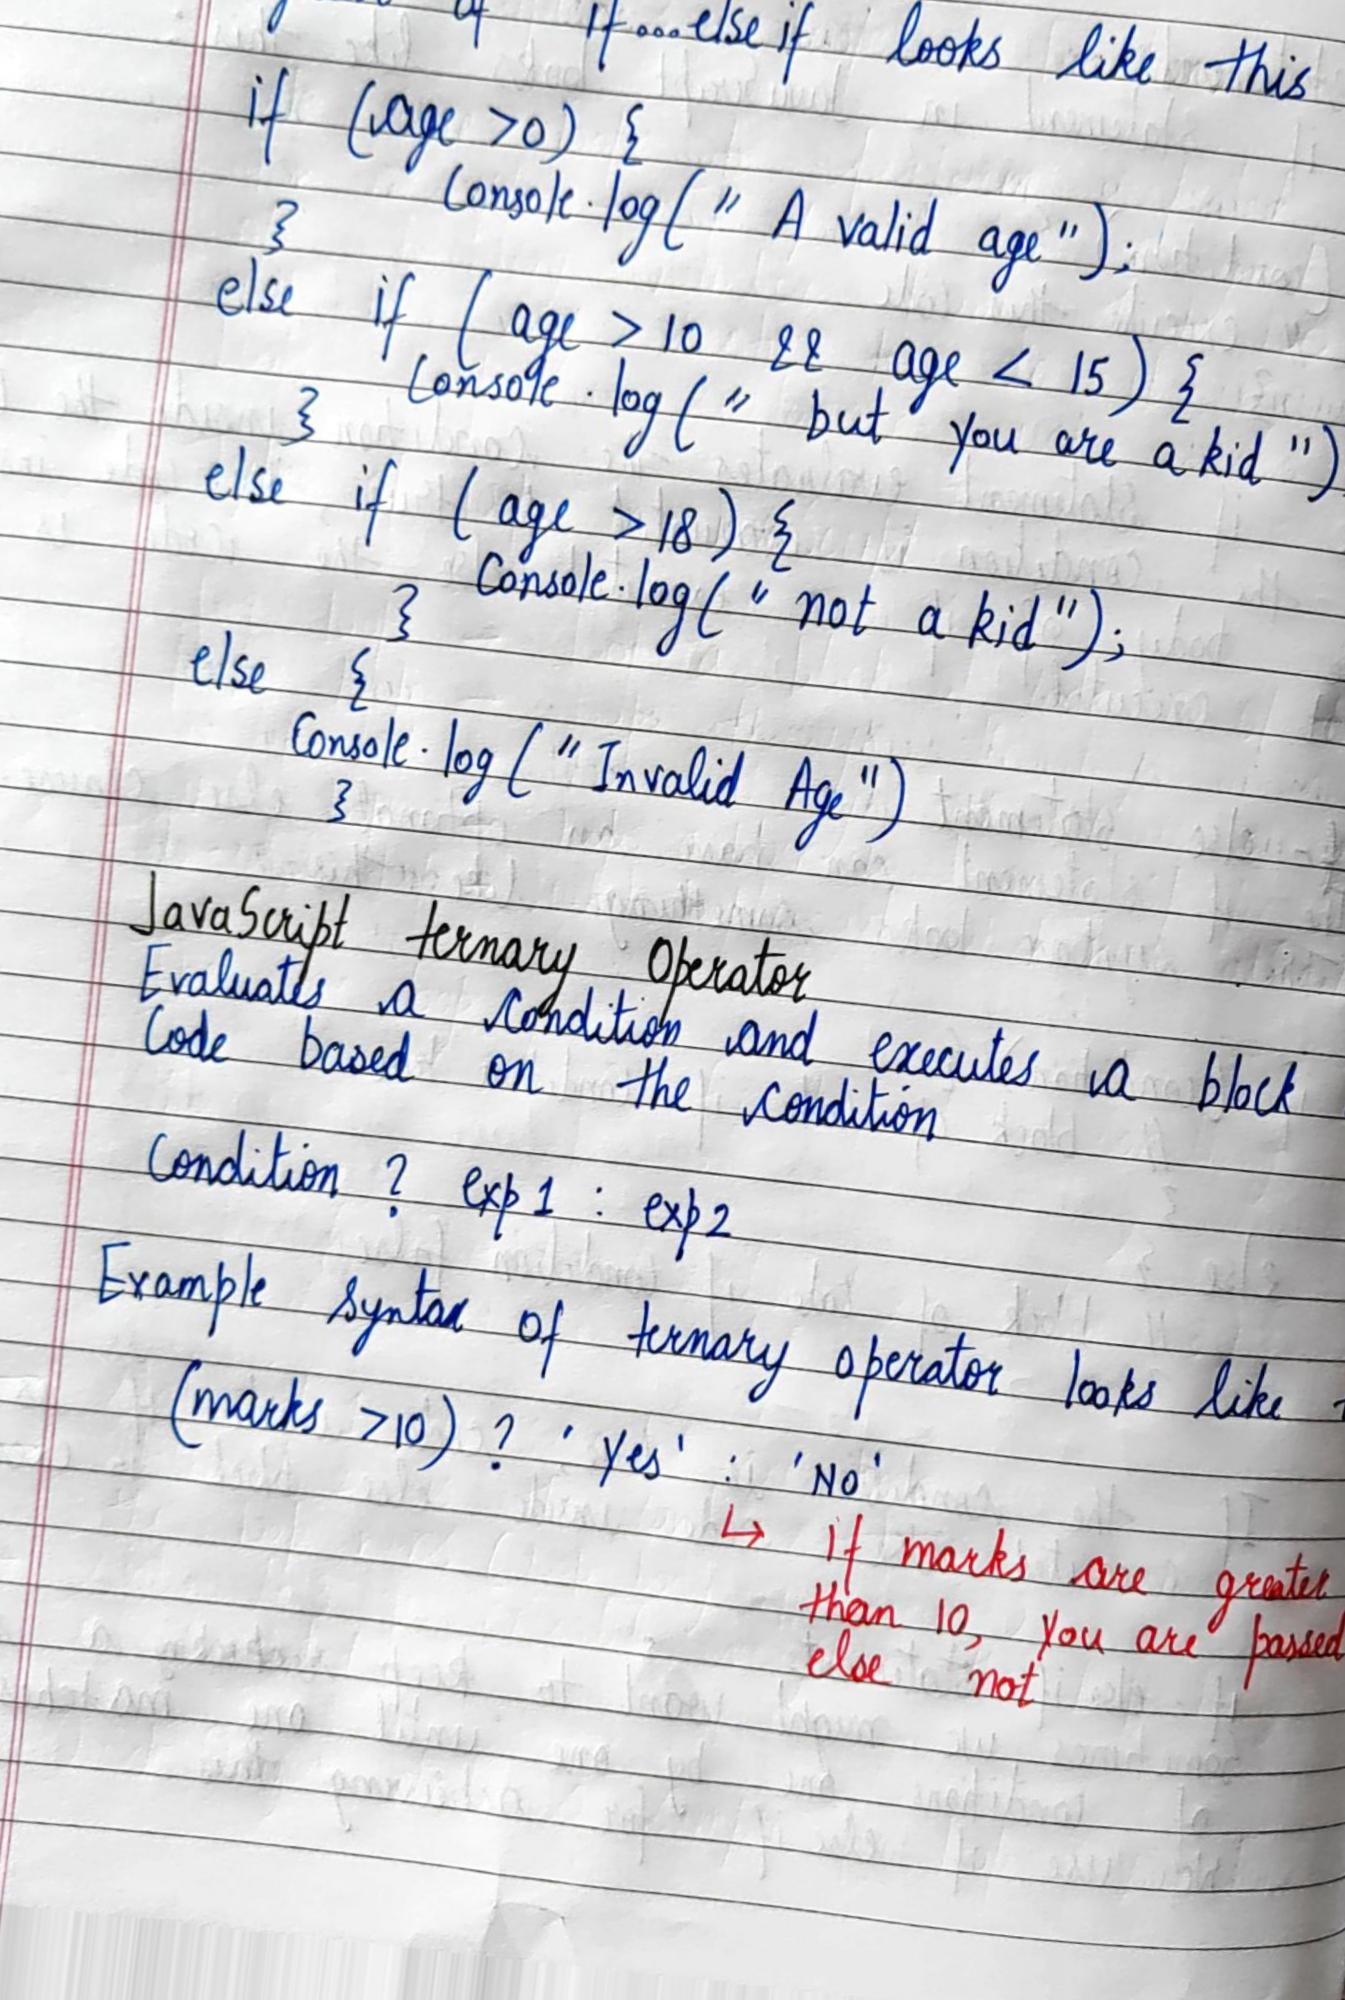 of if...else if looks like this
if (age >0) {
Console.log(" A valid age");
}
else if ( age > 10 && age < 15) {
Console.log(" but you are a kid ")
}
else if ( age >18) {
Console.log(" not a kid");
}
else {
Console.log ("Invalid Age")
}
JavaScript ternary Operator
Evaluates a condition and executes a block
Code based on the condition
Condition ? exp1 : exp2
Example syntax of ternary operator looks like
(marks >10) ? 'Yes' : 'NO'
↳ if marks are greater
than 10, you are passed
else not